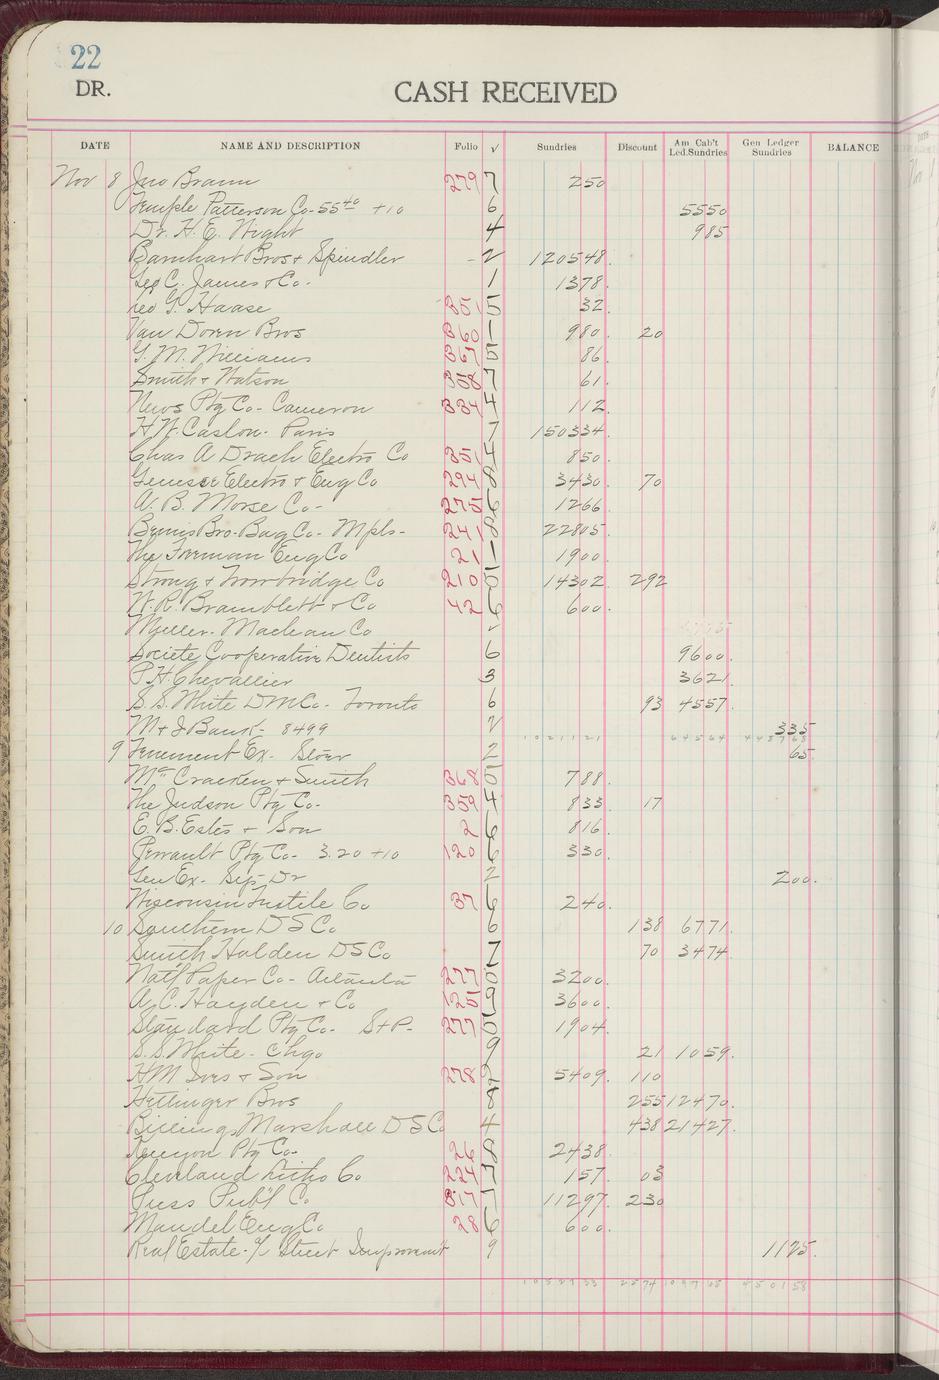 22
DR.
CASH RECEIVED
DATE NAME AND DESCRIPTION Folio √ Sundries Discount Am Cab't Led.Sundries Gen Ledger Sundries BALANCE
Nov 8 Jno Braun 279 7 250
Temple Patterson Co - 55 40 + 10 6 5550
Dr. H. E. Wight 4 985
Barnhart Bros & Spindler - √ 120548
Geo C. James & Co - 1 1378
Leo G. Haase 351 5 32
Van Doren Bros 360 1 980 20
G. M. Williams 367 5 86
Smith & Watson 358 7 61
News Ptg Co - Cameron 334 4 112
H. W. Caslon - Paris 7 150334
Chas A Drach Electro Co 351 4 850
Genesee Electro & Eng Co 294 8 3430 70
A. B. Morse Co - 275 6 1266
Bemis Bro. Bag Co - Mpls - 241 8 22805
The Freeman Eng Co 21 1 1900
Strong & Trowbridge Co 210 0 14302 292
W. R. Bramblett & Co 42 6 600
Myller. Maclean Co √
Societe Cooperative Dentists 6 9600
P. H. Chevallier 3 3621
S. S. White D M Co - Toronto 6 93 4557
M & I Bank - 8499 √ 335
9 Tenement Ex - 2 65
McCracken & Smith 368 0 788
The Judson Ptg Co - 359 4 833 17
E. B. Estes & Son 2 6 816
Perrault Ptg Co - 3.20 + 10 120 6 330
Gen Ex - 2 200
Wisconsin Co 37 6 240
10 Southern D S Co 6 138 6771
Smith Holden D S Co 7 70 3474
Nat'l Paper Co - Atlanta 277 0 3200
A. C. Hayden & Co 125 9 3600
Standard Ptg Co - S & P - 277 0 1904
S. S. White - Chgo 9 21 1059
H M Ives & Son 278 5409 110
Hettinger Bros 8 255 12470
Billings Marshall D S Co 4 438 21427
Kenyon Ptg Co - 26 8 2438
Cleveland Litho Co 224 7 157 03
Puss Publ Co 317 7 11297 230
Mandel Eng Co 28 6 600
Real Estate - Street Improvemt 9 1125
105 2133 2574 109765 450158